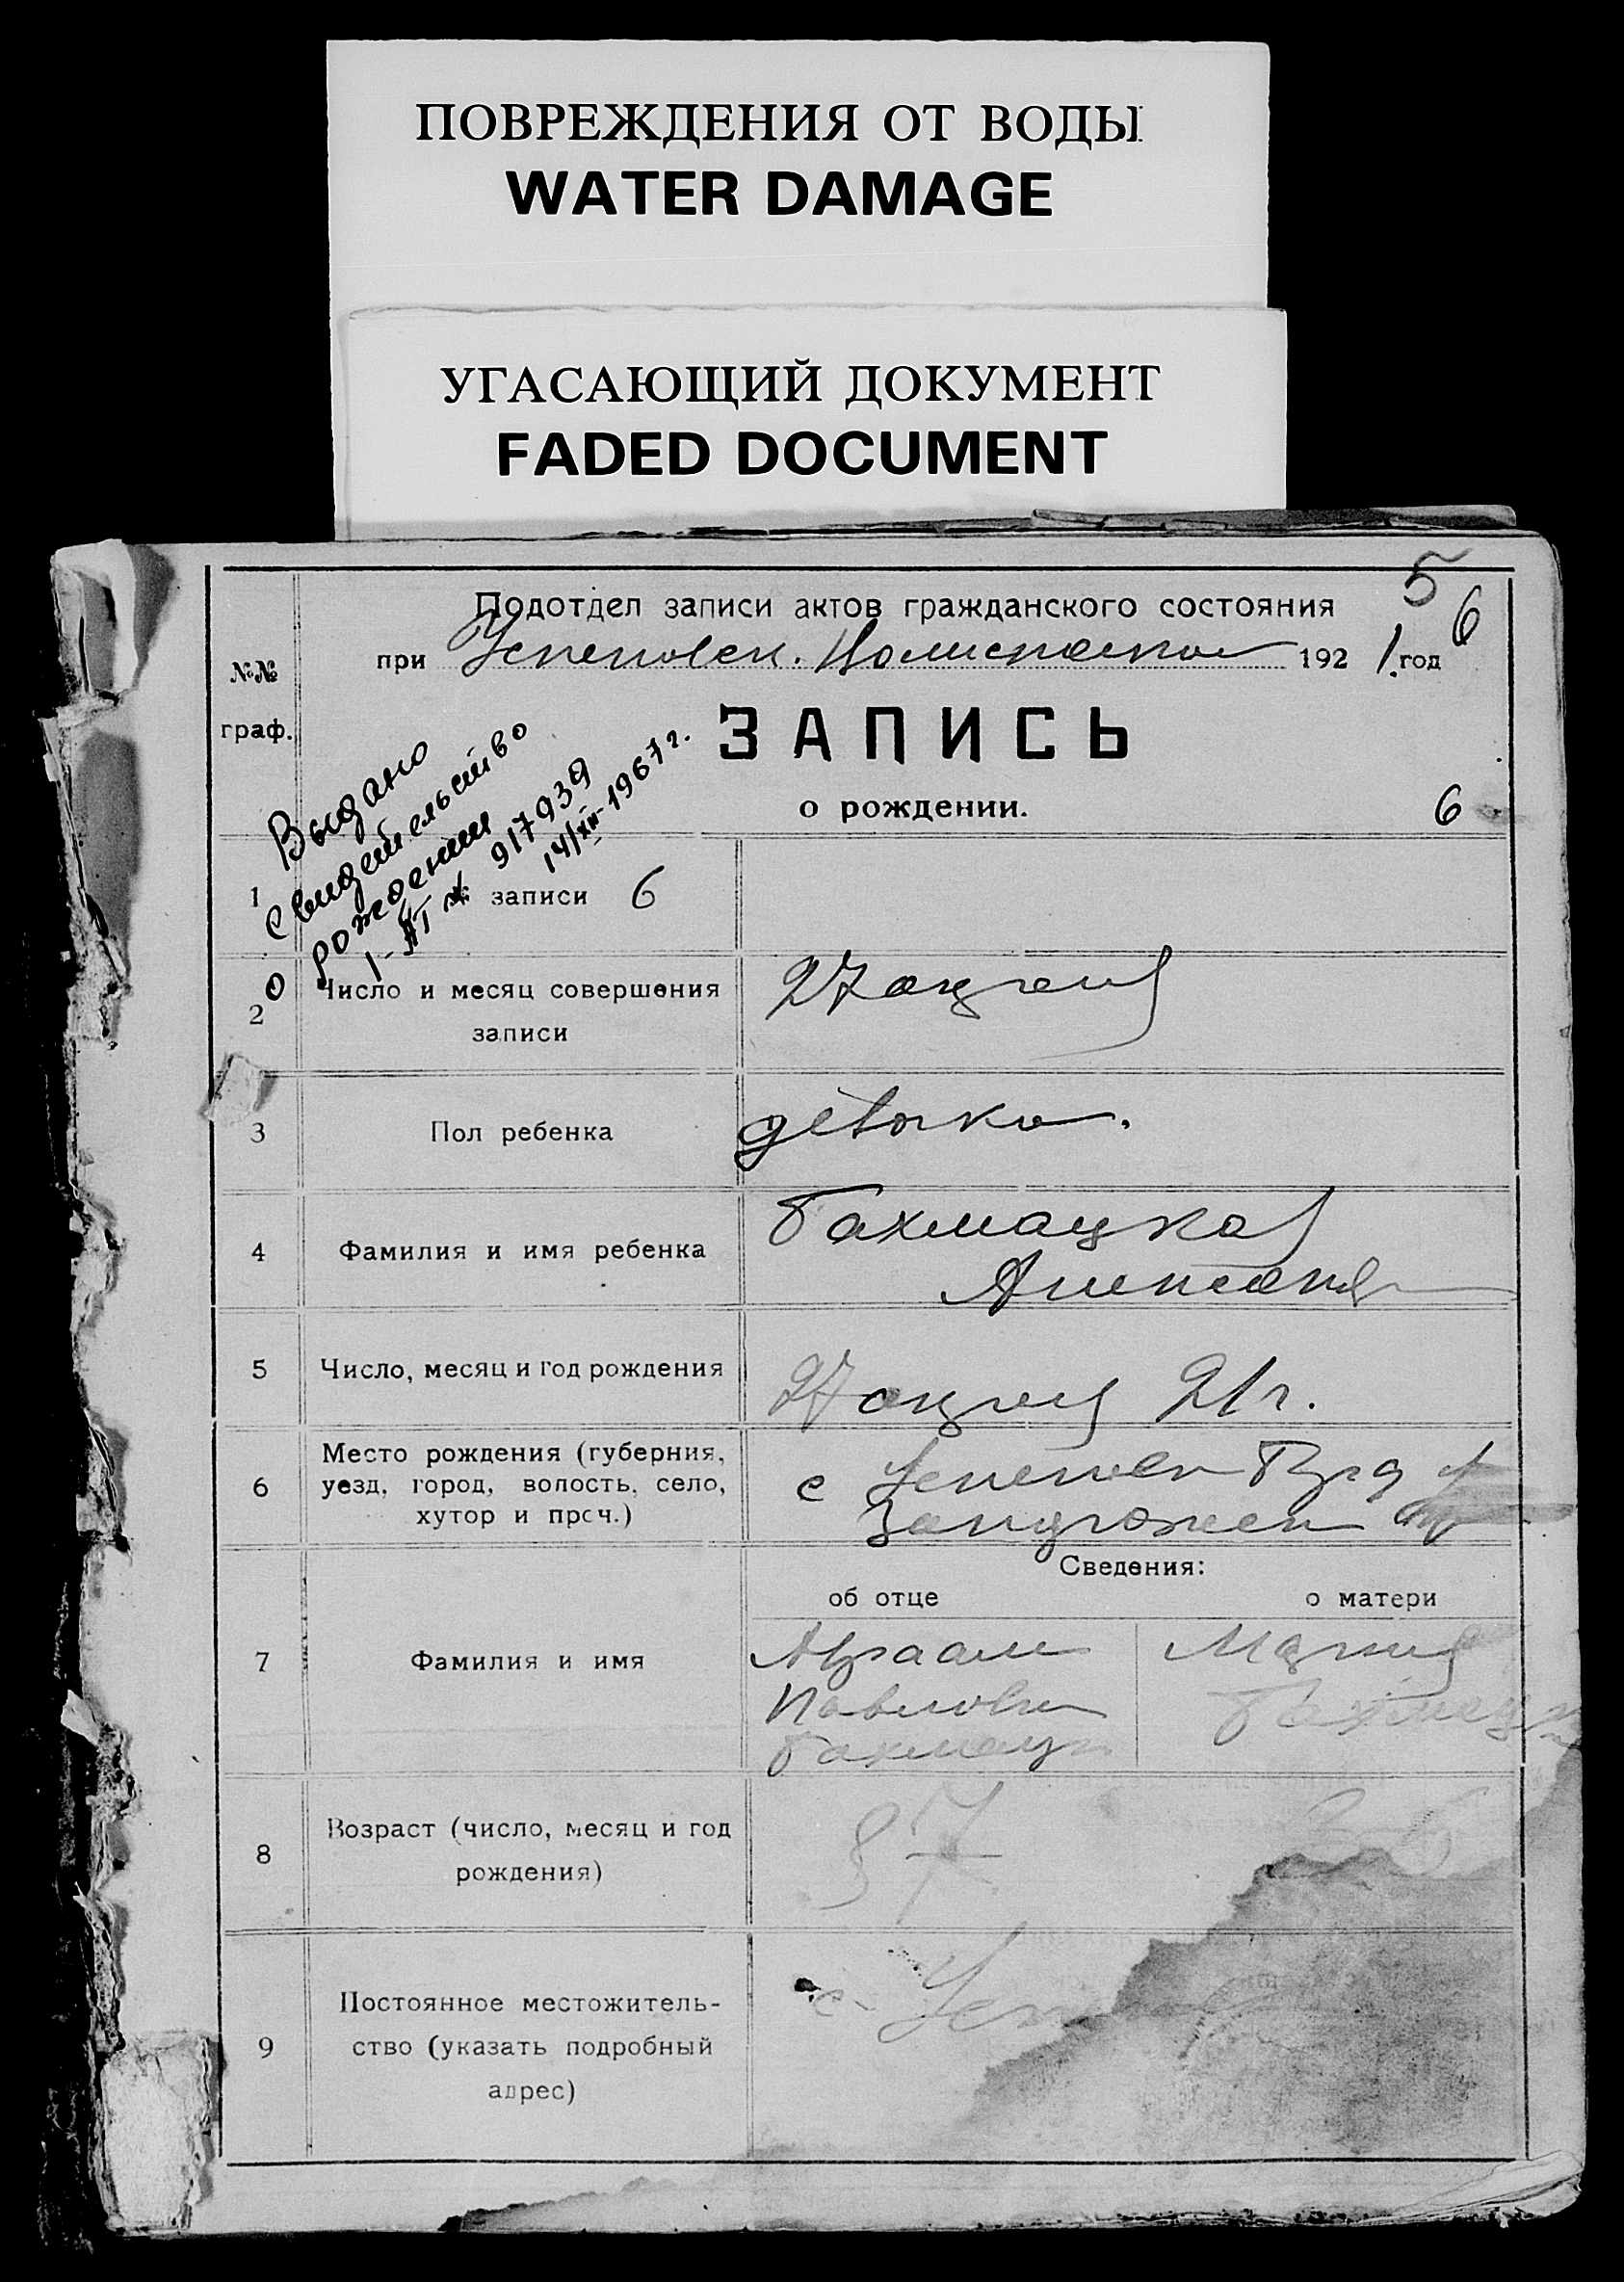 ПОВРЕЖДЕНИЯ ОТ ВОДЫ
WATER DAMAGE
УГАСАЮЩИЙ ДОКУМЕНТ
FADED DOCUMENT
5
6
Подотдел записи актов гражданского состояния
при Успеновск. 192 1. год
№№
граф.
ЗАПИСЬ
о рождении.
6
Выдано
свидетельство
о рождении
I-АГ № 917939
14/XII-1967 г.
1 записи 6
2 Число и месяц совершения
записи
27 апреля
3 Пол ребенка девочка.
4 Фамилия и имя ребенка Бахмацкая
5 Число, месяц и год рождения 27 апреля 21 г.
6 Место рождения (губерния,
уезд, город, волость, село,
хутор и проч.)
с Успеновк
Запорожск
Сведения:
об отце о матери
7 Фамилия и имя
Абраам
Павлович
Бахмацк
Мария
Бахмацк
8 Возраст (число, месяц и год
рождения)
37 36
9 Постоянное местожитель-
ство (указать подробный
адрес)
с. Усп